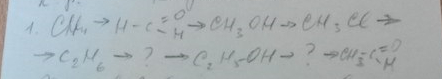 1. CH4 → H-C=O-H → CH3OH → CH3Cl →
→ C2H6 → ? → C2H5-OH → ? → CH3-C=O-H